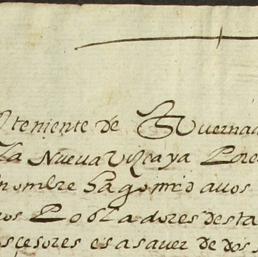 teniente de Guvernad
La Nueva Vizcaya Por e
nombre hago md a vos
ros Pobladores desta
scesores es a saver de dos